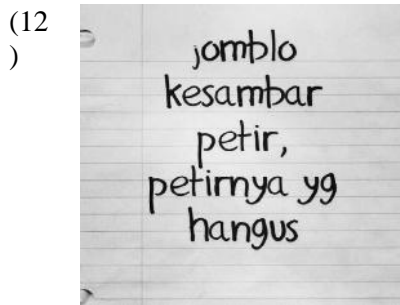 (12
)
jomblo
kesambar
petir,
petirnya yg
hangus